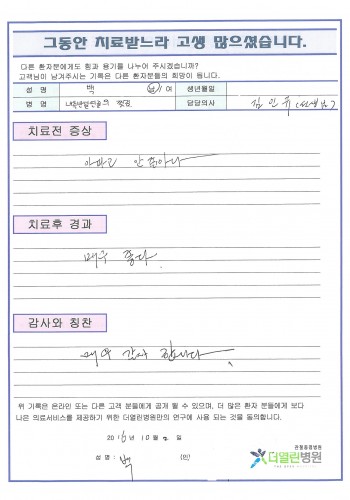 그동안 치료받느라 고생 많으셨습니다.
다른 환자분에게도 힘과 용기를 나누어 주시겠습니까?
고객님이 남겨주시는 기록은 다른 환자분들의 희망이 됩니다.
성 명 백 남/여 생년월일
병 명 담당의사 김민규(선생님)
치료전 증상
치료후 경과
매우 좋다
감사와 칭찬
매우 감사 합니다
위 기록은 온라인 또는 다른 고객 분들에게 공개 될 수 있으며, 더 많은 환자 분들에게 보다
나은 의료서비스를 제공하기 위한 더열린병원만의 연구에 사용 되는 것을 동의합니다.
2016년 10월 2일
성 명 : 백 (인)
관절중점병원
더열린병원